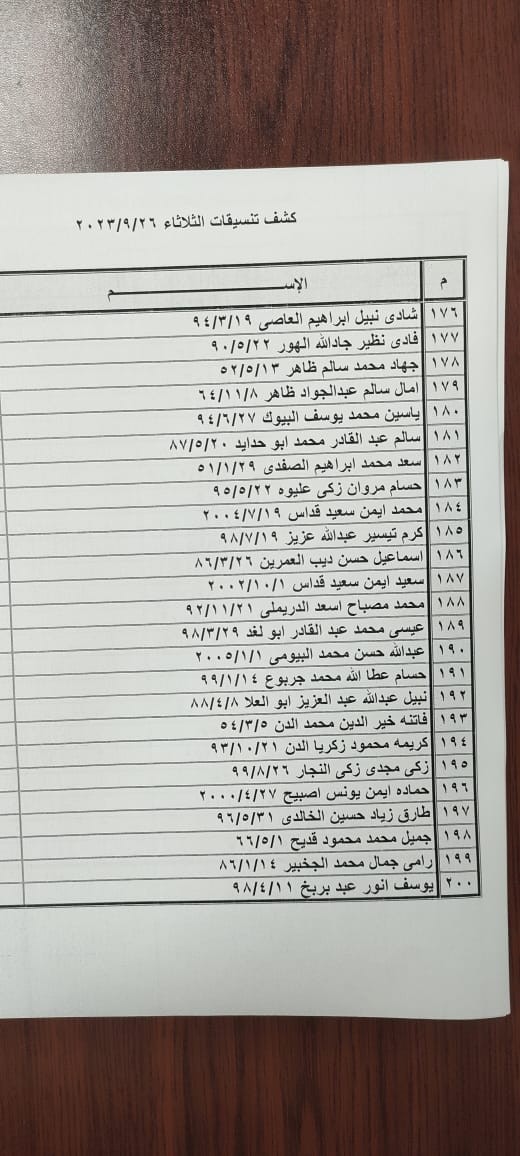 كشف تنسيقات الثلاثاء ٢٠٢٣/٩/٢٦
م الإســـــــــــــــــم
١٧٦ شادى نبيل ابراهيم العاصى ٩٤/٣/١٩
١٧٧ فادى نظير جادالله الهور ٩٠/٥/٢٢
١٧٨ جهاد محمد سالم ظاهر ٥٢/٥/١٣
١٧٩ امال سالم عبدالجواد ظاهر ٦٤/١١/٨
١٨٠ ياسين محمد يوسف البيوك ٩٤/٦/٢٧
١٨١ سالم عبد القادر محمد ابو حدايد ٨٧/٥/٢٠
١٨٢ سعد محمد ابراهيم الصفدى ٥١/١/٢٩
١٨٣ حسام مروان زكى عليوه ٩٥/٥/٢٢
١٨٤ محمد ايمن سعيد قداس ٢٠٠٤/٧/١٩
١٨٥ كرم تيسير عبدالله عزيز ٩٨/٧/١٩
١٨٦ اسماعيل حسن ديب العمرين ٨٦/٣/٢٦
١٨٧ سعيد ايمن سعيد قداس ٢٠٠٢/١٠/١
١٨٨ محمد مصباح اسعد الدريملى ٩٢/١١/٢١
١٨٩ عيسى محمد عبد القادر ابو لغد ٩٨/٣/٢٩
١٩٠ عبدالله حسن محمد البيومى ٢٠٠٥/١/١
١٩١ حسام عطا الله محمد جربوع ٩٩/١/١٤
١٩٢ نبيل عبدالله عبد العزيز ابو العلا ٨٨/٤/٨
١٩٣ فاتنه خير الدين محمد الدن ٥٤/٣/٥
١٩٤ كريمه محمود زكريا الدن ٩٣/١٠/٢١
١٩٥ زكى مجدى زكى النجار ٩٩/٨/٢٦
١٩٦ حماده ايمن يونس اصبيح ٢٠٠٠/٤/٢٧
١٩٧ طارق زياد حسين الخالدى ٩٦/٥/٣١
١٩٨ جميل محمد محمود قديح ٦٦/٥/١
١٩٩ رامى جمال محمد الجخبير ٨٦/١/١٤
٢٠٠ يوسف انور عبد بربخ ٩٨/٤/١١